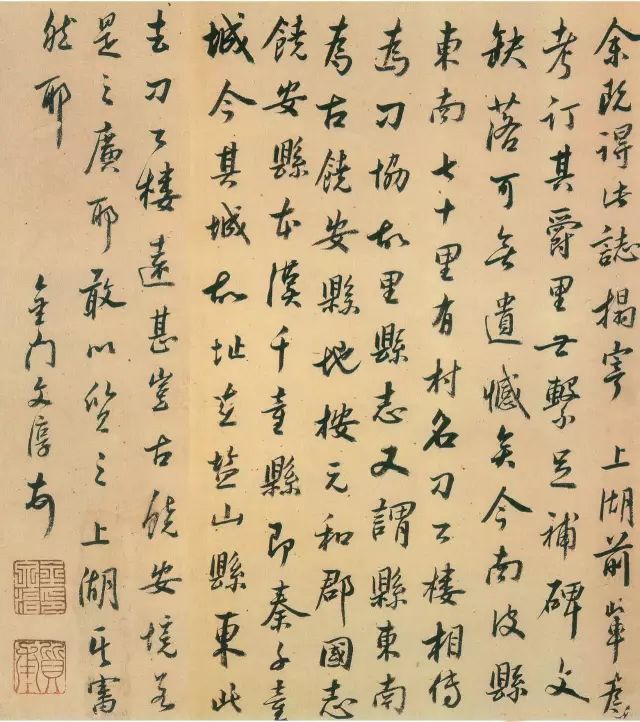 余既得此誌搨寄 上湖前輩為
考訂其爵里世繫足補碑文
缺落可無遺憾矣今南皮縣
東南七十里有村名刀公樓相傳
為刀協故里縣志又謂縣東南
為古饒安縣地按元和郡國志
饒安縣本漢千童縣即秦千童
城今其城故址在鹽山縣東此
去刀公樓遠甚豈古饒安境若
是之廣耶敢以質之 上湖其審
然耶
金门文淳